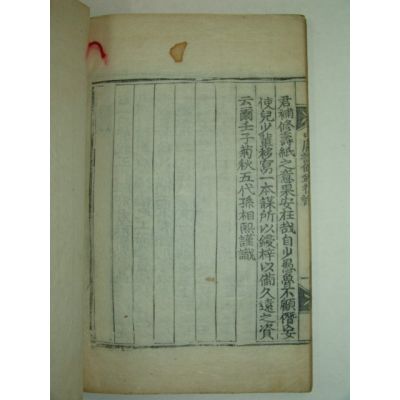 君補修壽紙之意果安在哉自少愚魯不顧僭妄
使兒少輩移寫一本謀所以綬梓以備久遠之資
云爾壬子菊秋五代孫相熙謹識